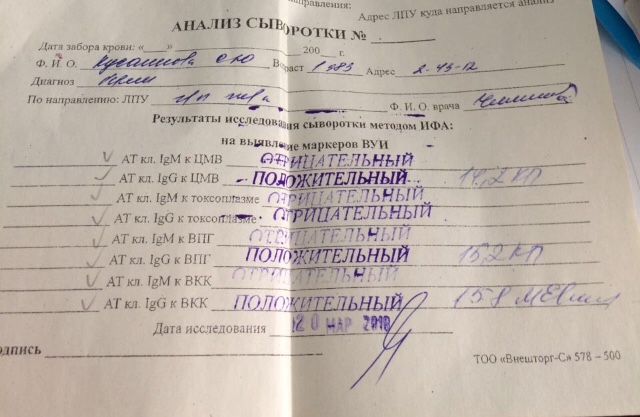 направления:
Адрес ЛПУ куда направляется анализ
АНАЛИЗ СЫВОРОТКИ №
Дата забора крови: «___» 200 г.
Ф. И. О. Возраст 1983 Адрес 2-43-12
Диагноз
По направлению: ЛПУ Ф. И. О. врача
Результаты исследования сыворотки методом ИФА:
на выявление маркеров ВУИ
АТ кл. IgM к ЦМВ ОТРИЦАТЕЛЬНЫЙ
АТ кл. IgG к ЦМВ ПОЛОЖИТЕЛЬНЫЙ 14,2 КП
АТ кл. IgM к токсоплазме ОТРИЦАТЕЛЬНЫЙ
АТ кл. IgG к токсоплазме ОТРИЦАТЕЛЬНЫЙ
АТ кл. IgM к ВПГ ОТРИЦАТЕЛЬНЫЙ
АТ кл. IgG к ВПГ ПОЛОЖИТЕЛЬНЫЙ 15,2 КП
АТ кл. IgM к ВКК ОТРИЦАТЕЛЬНЫЙ
АТ кл. IgG к ВКК ПОЛОЖИТЕЛЬНЫЙ 158
Дата исследования 20 МАР 2018
одпись
ТОО «Внешторг-С» 578 – 500